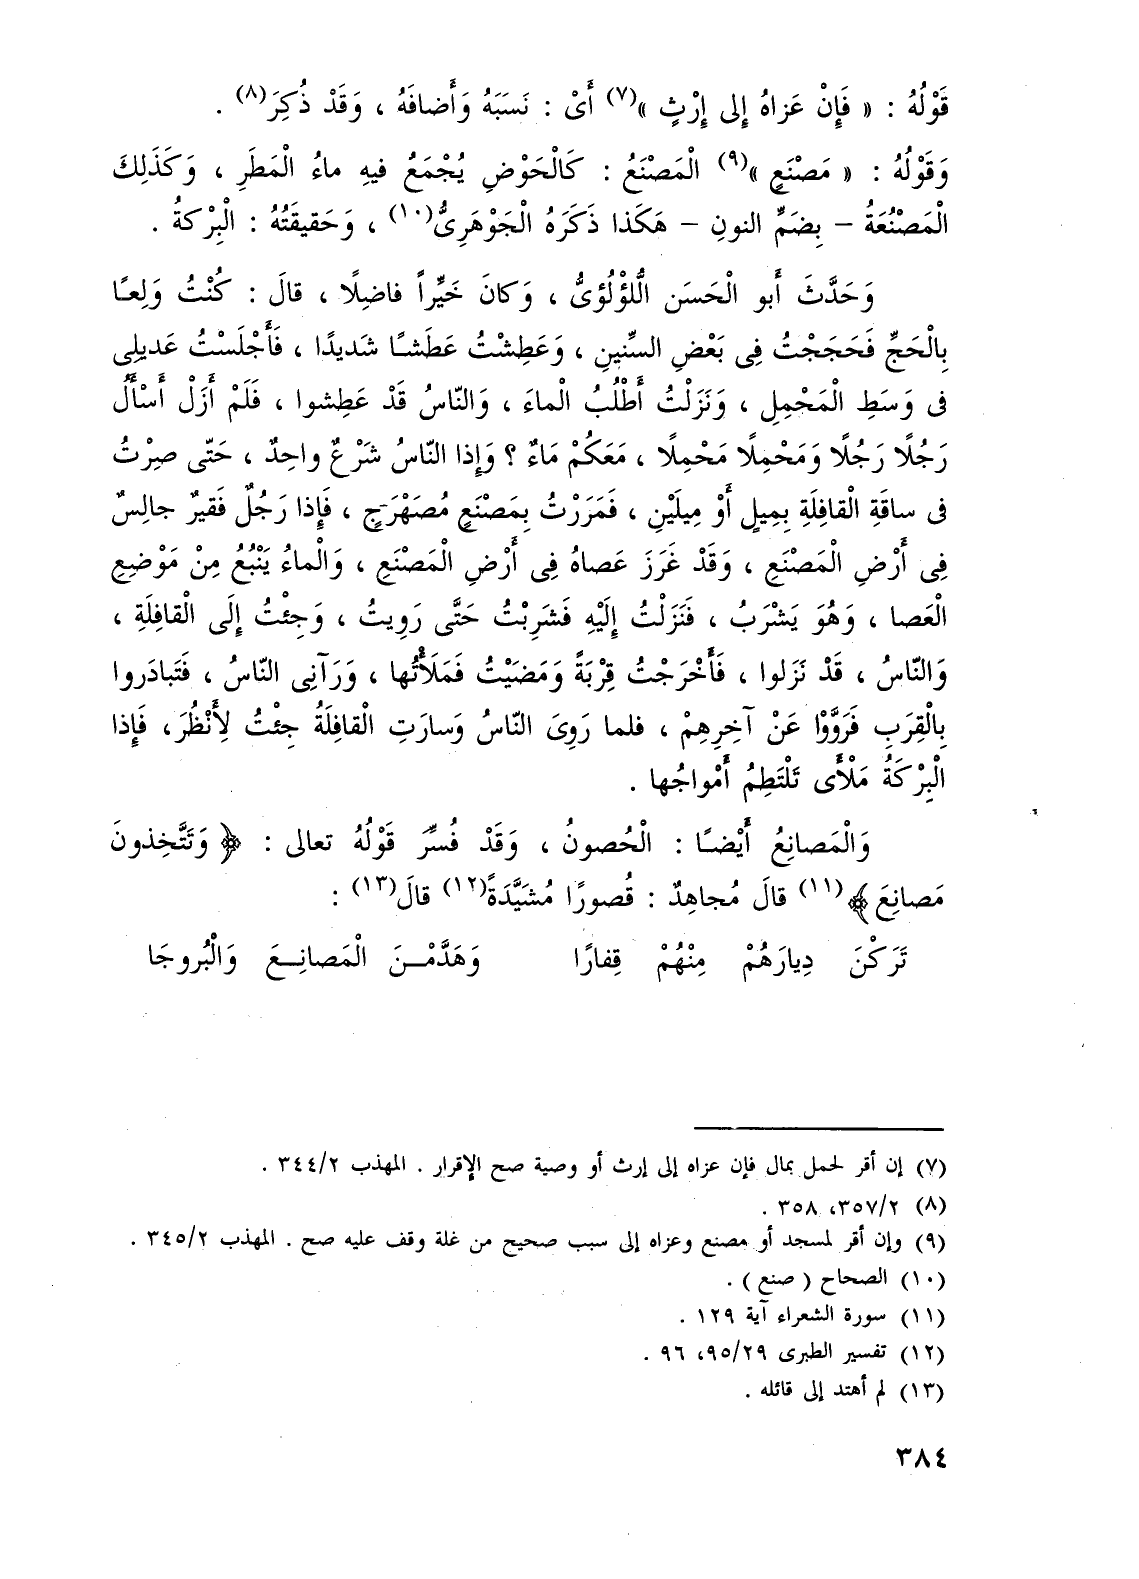 قَوْلُهُ : « فَإِنْ عَزاهُ إِلى إِرْثٍ »(٧) أَىْ : نَسَبَهُ وَأَضافَهُ ، وَقَدْ ذُكِرَ(٨) .
وَقَوْلُهُ : « مَصْنَعٍ »(٩) الْمَصْنَعُ : كَالْحَوْضِ يُجْمَعُ فيهِ ماءُ الْمَطَرِ ، وَكَذَلِكَ
الْمَصْنُعَةُ – بِضَمِّ النونِ – هَكَذا ذَكَرَهُ الْجَوْهَرِىُّ(١٠) ، وَحَقيقَتُهُ : الْبِرْكةُ .
وَحَدَّثَ أَبو الْحَسَن الُّلؤْلُؤىُّ ، وَكانَ خَيِّراً فاضِلًا ، قالَ : كُنْتُ وَلِعـًا
بِالْحَجِّ فَحَجَجْتُ فِى بَعْضِ السِّنينِ ، وَعَطِشْتُ عَطَشـًا شَديدًا ، فَأَجْلَسْتُ عَديلِى
فى وَسَطِ الْمَحْمِلِ ، وَنَزَلْتُ أَطْلُبُ الْماءَ ، وَالنّاسُ قَدْ عَطِشوا ، فَلَمْ أَزَلْ أَسْأَلُ
رَجُلًا رَجُلًا وَمَحْمِلًا مَحْمِلًا ، مَعَكُمْ مَاءٌ ؟ وَإِذا النّاسُ شَرْعٌ واحِدٌ ، حَتّى صِرْتُ
فى ساقَةِ الْقافِلَةِ بِميلٍ أَوْ مِيلَيْنِ ، فَمَرَرْتُ بِمَصْنَعٍ مُصَهْرَجٍ ، فَإِذا رَجُلٌ فَقيرٌ جالِسٌ
فِى أَرْضِ الْمَصْنَعِ ، وَقَدْ غَرَزَ عَصاهُ فِى أَرْضِ الْمَصْنَعِ ، وَالْماءُ يَنْبُعُ مِنْ مَوْضِعِ
الْعَصا ، وَهُوَ يَشْرَبُ ، فَنَزَلْتُ إِلَيْهِ فَشَرِبْتُ حَتَّى رَويتُ ، وَجِئْتُ إِلَى الْقافِلَةِ ،
وَالنّاسُ ، قَدْ نَزَلوا ، فَأَخْرَجْتُ قِرْبَةً وَمَضَيْتُ فَمَلَأْتُها ، وَرَآنِى النّاسُ ، فَتَبادَروا
بِالْقِرَبِ فَرَوَّوْا عَنْ آخِرِهِمْ ، فلما رَوِىَ النّاسُ وَسارَتِ الْقافِلَةُ جِئْتُ لِأَنْظُرَ ، فَإِذا
الْبِرْكَةُ مَلْأَى تَلْتَطِمُ أَمْواجُها .
وَالْمَصانِعُ أَيْضـًا : الْحُصونُ ، وَقَدْ فُسِّرَ قَوْلُهُ تعالى : ﴿ وَتَتَّخِذونَ
مَصانِعَ ﴾(١١) قالَ مُجاهِدٌ : قُصورًا مُشَيَّدَةً(١٢) قالَ(١٣) :
تَرَكْنَ دِيارَهُمْ مِنْهُمْ قِفارًا وَهَدَّمْـنَ الْمَصانِـعَ وَالْبُروجَا
(٧) إن أقر لحمل بمال فإن عزاه إلى إرث أو وصية صح الإقرار . المهذب ٣٤٤/٢ .
(٨) ٣٥٧/٢، ٣٥٨ .
(٩) وإن أقر لمسجد أو مصنع وعزاه إلى سبب صحيح من غلة وقف عليه صح . المهذب ٣٤٥/٢ .
(١٠) الصحاح ( صنع ) .
(١١) سورة الشعراء آية ١٢٩ .
(١٢) تفسير الطبرى ٩٥/٢٩، ٩٦ .
(١٣) لم أهتد إلى قائله .
٣٨٤